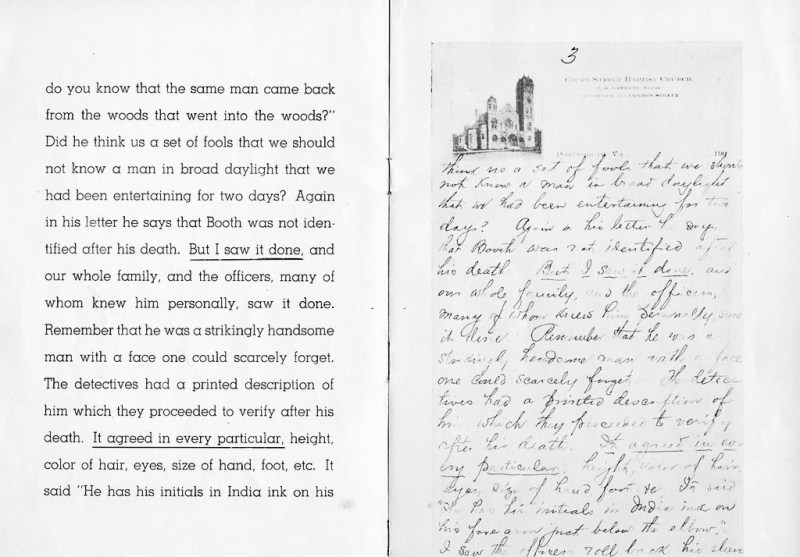 do you know that the same man came back
from the woods that went into the woods?"
Did he think us a set of fools that we should
not know a man in broad daylight that we
had been entertaining for two days? Again
in his letter he says that Booth was not iden-
tified after his death. But I saw it done, and
our whole family, and the officers, many of
whom knew him personally, saw it done.
Remember that he was a strikingly handsome
man with a face one could scarcely forget.
The detectives had a printed description of
him which they proceeded to verify after his
death. It agreed in every particular, height,
color of hair, eyes, size of hand, foot, etc. It
said "He has his initials in India ink on his
3
Court Street Baptist Church,
190
think us a set of fools that we should
not know a man in broad daylight
that we had been entertaining for two
days? Again in his letter he says
that Booth was not identified after
his death. But I saw it done, and
our whole family, and the officers,
many of whom knew him personally, saw
it done. Remember that he was a
strikingly handsome man with a face
one could scarcely forget. The detec
tives had a printed description of
him which they proceeded to verify
after his death. It agreed in ev
ery particular, height, color of hair,
eyes, size of hand foot, &c. It said
"He has his initials in India ink on
his fore arm just below the elbow".
I saw the officers roll back his sleeve